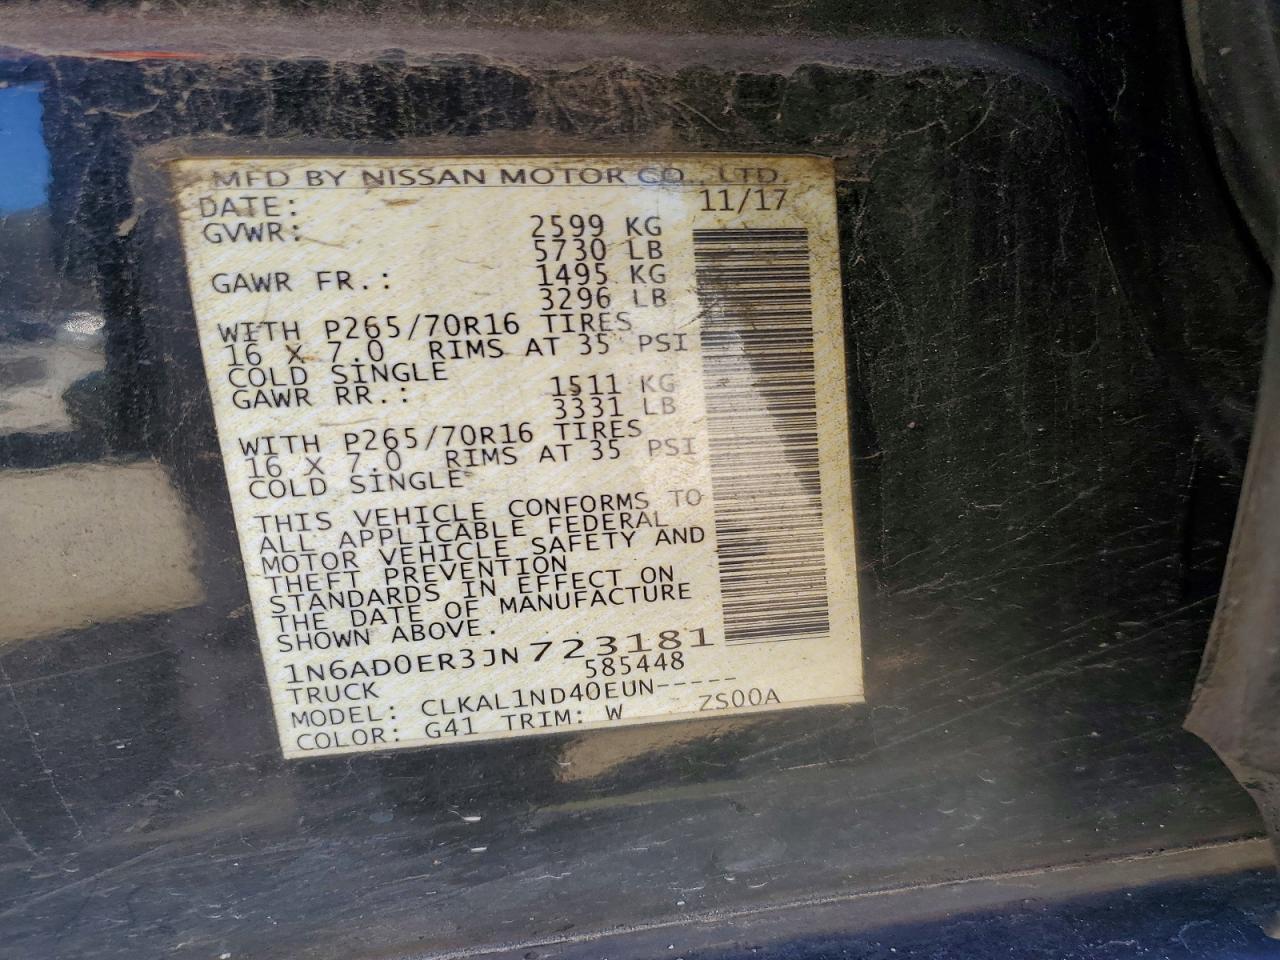 MFD BY NISSAN MOTOR CO., LTD.
DATE: 11/17
GVWR: 2599 KG
5730 LB
GAWR FR.: 1495 KG
3296 LB
WITH P265/70R16 TIRES
16 X 7.0 RIMS AT 35 PSI
COLD SINGLE
GAWR RR.: 1511 KG
3331 LB
WITH P265/70R16 TIRES
16 X 7.0 RIMS AT 35 PSI
COLD SINGLE
THIS VEHICLE CONFORMS TO
ALL APPLICABLE FEDERAL
MOTOR VEHICLE SAFETY AND
THEFT PREVENTION
STANDARDS IN EFFECT ON
THE DATE OF MANUFACTURE
SHOWN ABOVE.
1N6AD0ER3JN723181
TRUCK 585448
MODEL: CLKAL1ND40EUN-----
COLOR: G41 TRIM: W ZS00A